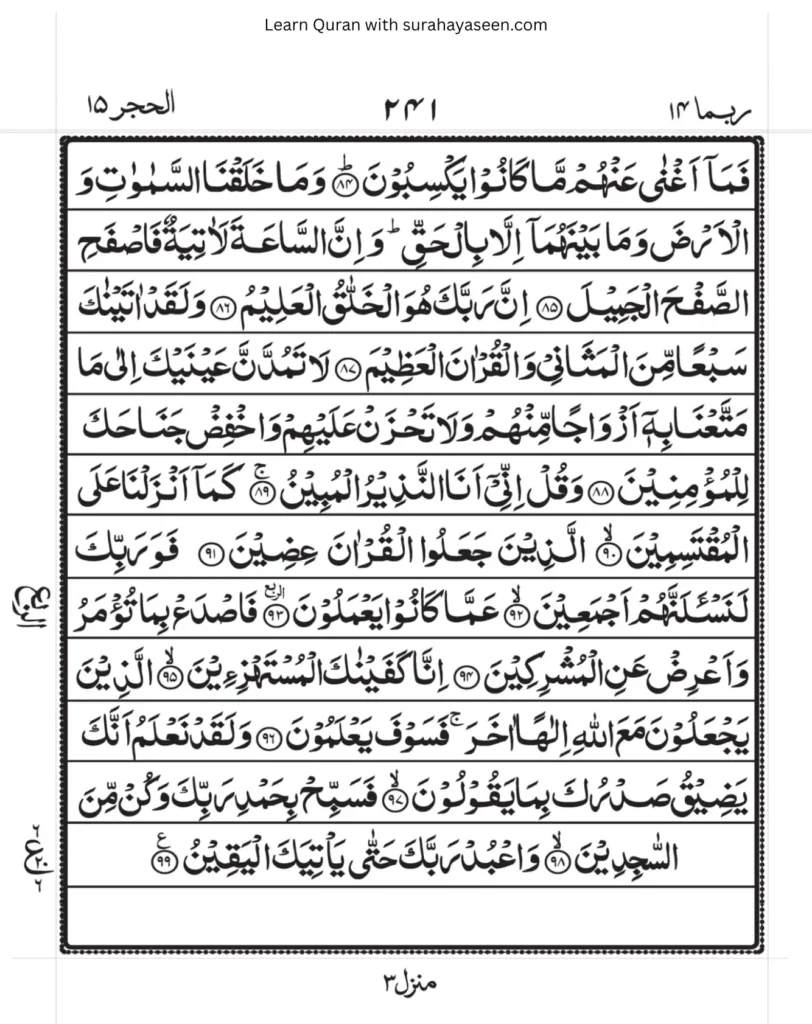 Learn Quran with surahayaseen.com
ربما ۱۴ ۲۴۱ الحجر ۱۵
فَمَاۤ اَغْنٰى عَنْهُمْ مَّا كَانُوْا يَكْسِبُوْنَ ؕ﴿۸۴﴾ وَمَا خَلَقْنَا السَّمٰوٰتِ وَ
الْاَرْضَ وَمَا بَيْنَهُمَاۤ اِلَّا بِالْحَقِّ ؕ وَاِنَّ السَّاعَةَ لَاٰتِيَةٌ فَاصْفَحِ
الصَّفْحَ الْجَمِيْلَ ﴿۸۵﴾ اِنَّ رَبَّكَ هُوَ الْخَلّٰقُ الْعَلِيْمُ ﴿۸۶﴾ وَلَقَدْ اٰتَيْنٰكَ
سَبْعًا مِّنَ الْمَثَانِىْ وَالْقُرْاٰنَ الْعَظِيْمَ ﴿۸۷﴾ لَا تَمُدَّنَّ عَيْنَيْكَ اِلٰى مَا
مَتَّعْنَا بِهٖۤ اَزْوَاجًا مِّنْهُمْ وَلَا تَحْزَنْ عَلَيْهِمْ وَاخْفِضْ جَنَاحَكَ
لِلْمُؤْمِنِيْنَ ﴿۸۸﴾ وَقُلْ اِنِّىْۤ اَنَا النَّذِيْرُ الْمُبِيْنُ ۚ﴿۸۹﴾ كَمَاۤ اَنْزَلْنَا عَلَى
الْمُقْتَسِمِيْنَ ۙ﴿۹۰﴾ الَّذِيْنَ جَعَلُوا الْقُرْاٰنَ عِضِيْنَ ﴿۹۱﴾ فَوَرَبِّكَ
لَنَسْـَٔلَنَّهُمْ اَجْمَعِيْنَ ۙ﴿۹۲﴾ عَمَّا كَانُوْا يَعْمَلُوْنَ الربع﴿۹۳﴾ فَاصْدَعْ بِمَا تُؤْمَرُ
الربع
وَاَعْرِضْ عَنِ الْمُشْرِكِيْنَ ﴿۹۴﴾ اِنَّا كَفَيْنٰكَ الْمُسْتَهْزِءِيْنَ ۙ﴿۹۵﴾ الَّذِيْنَ
يَجْعَلُوْنَ مَعَ اللّٰهِ اِلٰهًا اٰخَرَ ۚ فَسَوْفَ يَعْلَمُوْنَ ﴿۹۶﴾ وَلَقَدْ نَعْلَمُ اَنَّكَ
يَضِيْقُ صَدْرُكَ بِمَا يَقُوْلُوْنَ ۙ﴿۹۷﴾ فَسَبِّحْ بِحَمْدِ رَبِّكَ وَكُنْ مِّنَ
السّٰجِدِيْنَ ۙ﴿۹۸﴾ وَاعْبُدْ رَبَّكَ حَتّٰى يَاْتِيَكَ الْيَقِيْنُ ع﴿۹۹﴾
۶ ع۲۰ ۶
منزل ۳